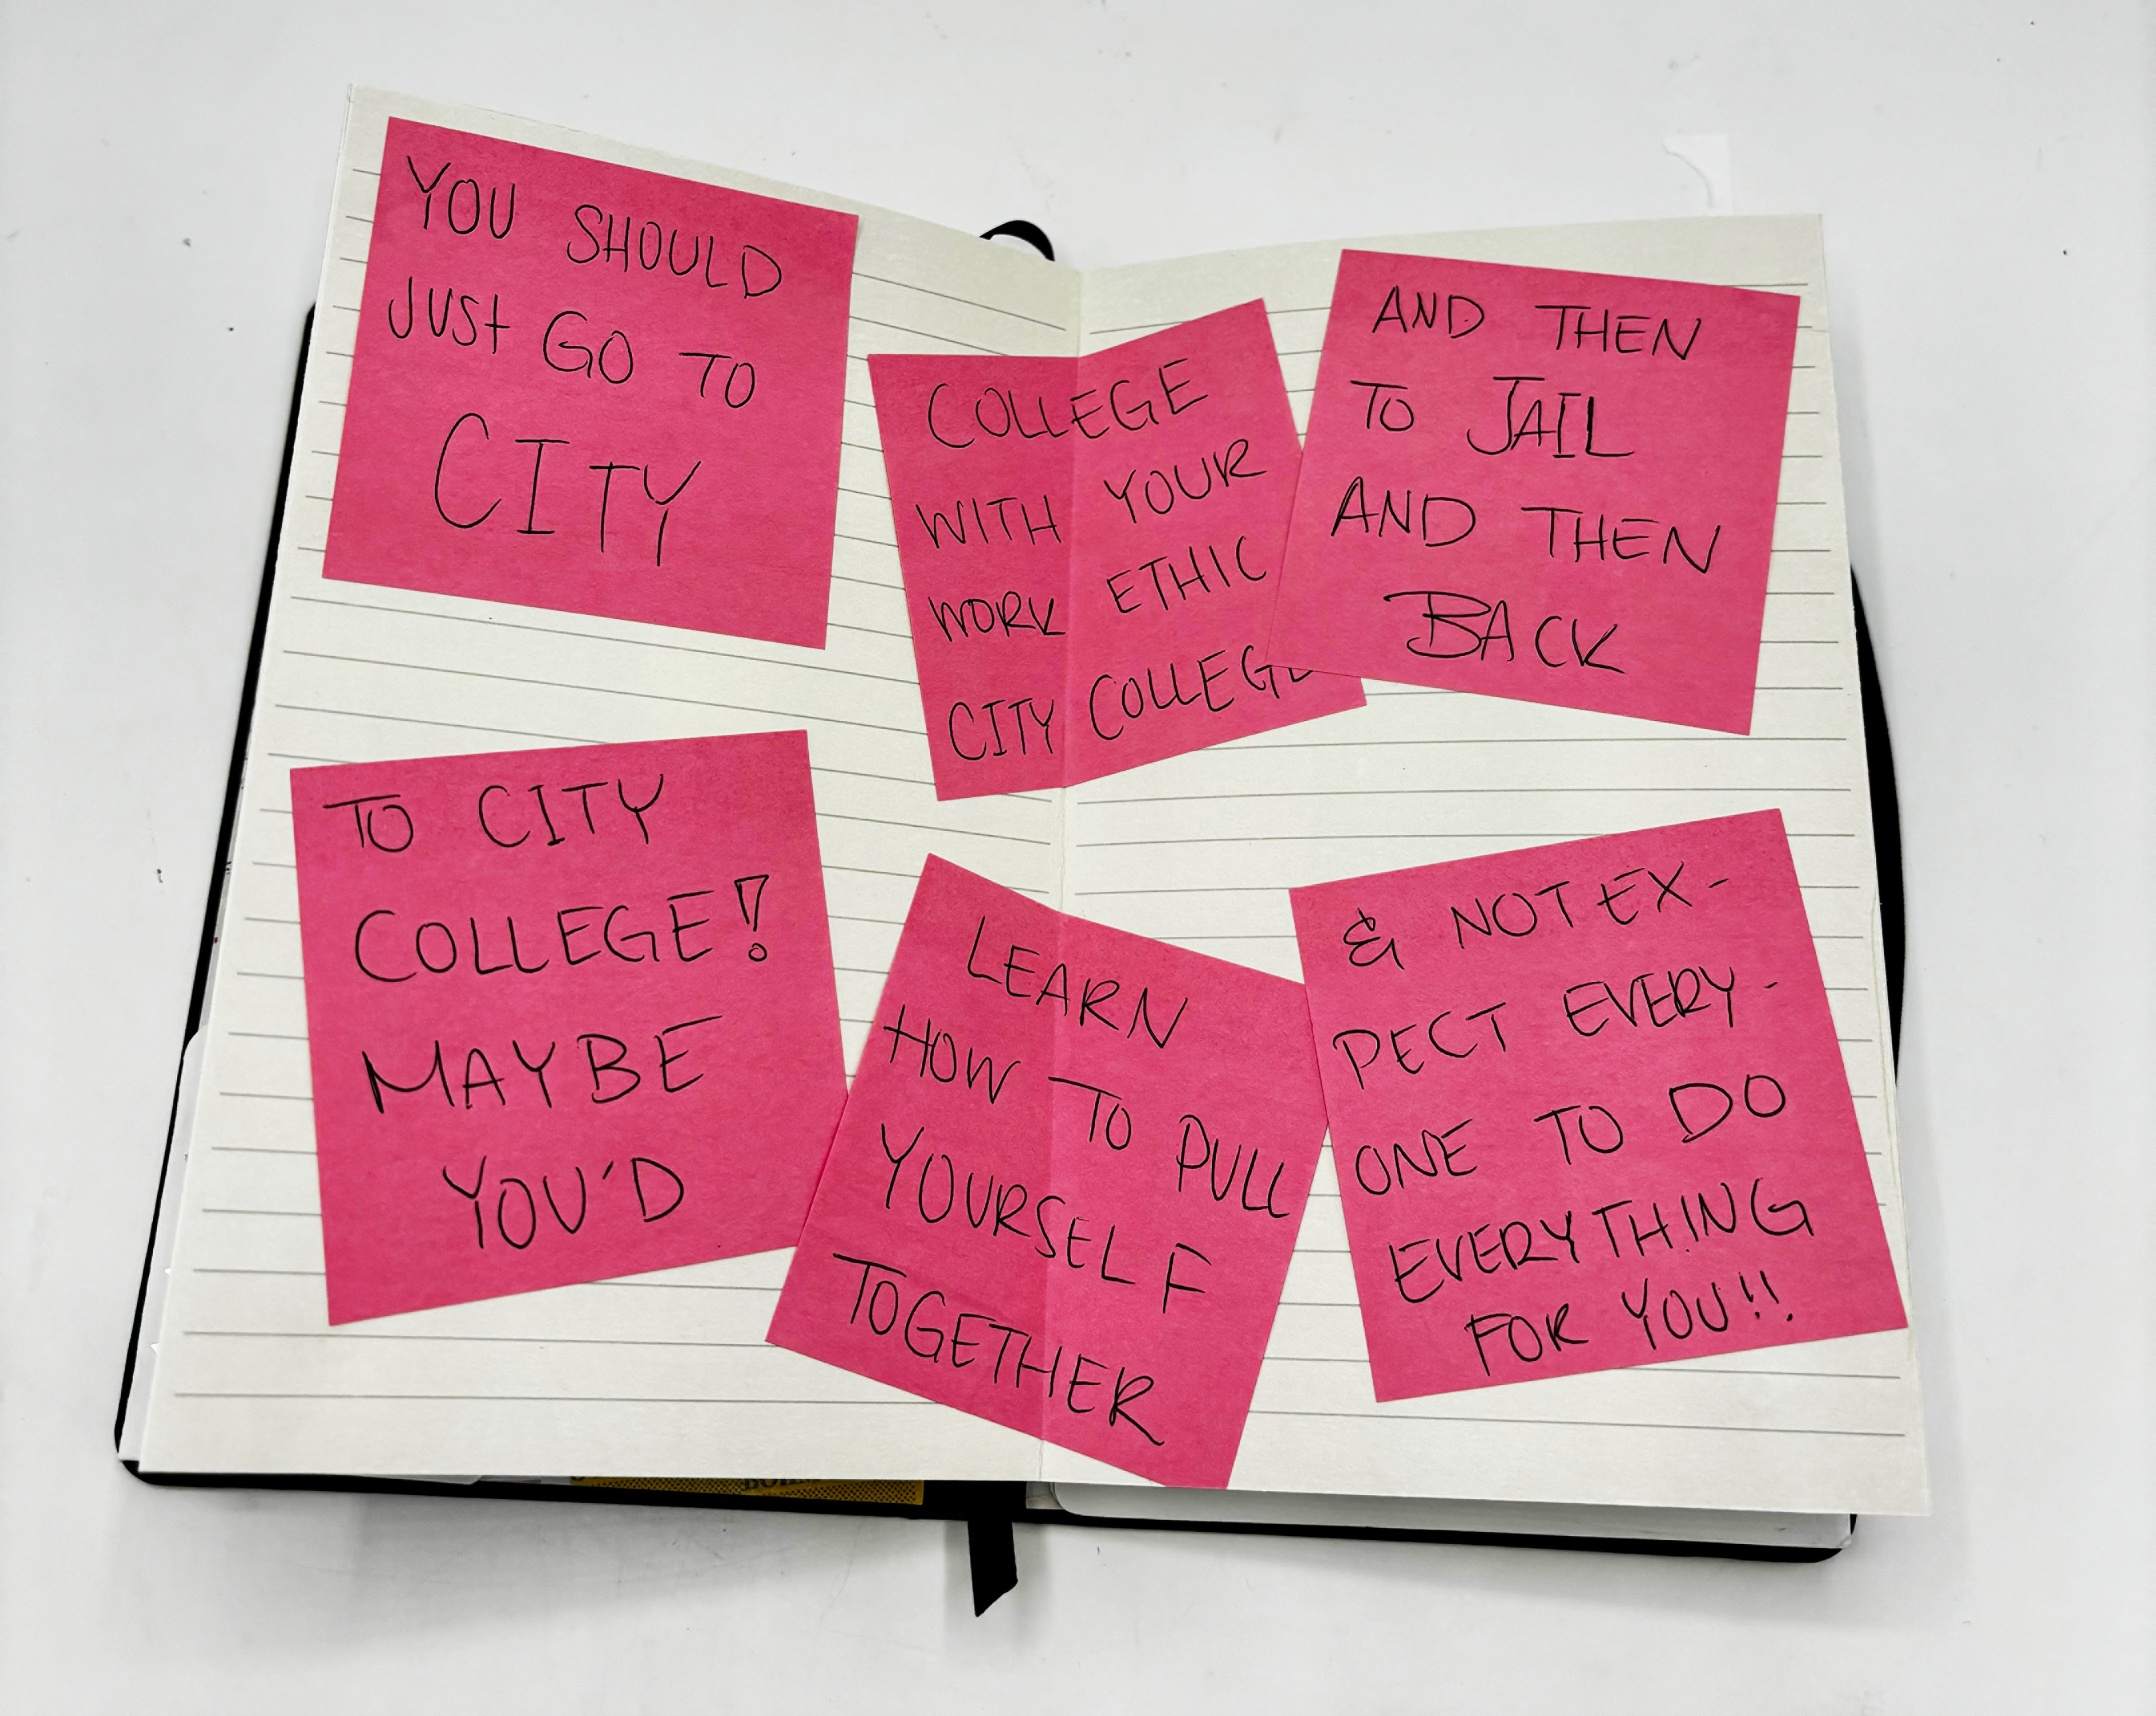 YOU SHOULD
JUST GO TO
CITY
COLLEGE
WITH YOUR
WORK ETHIC
CITY COLLEGE
AND THEN
TO JAIL
AND THEN
BACK
TO CITY
COLLEGE!
MAYBE
YOU'D
LEARN
HOW TO PULL
YOURSELF
TOGETHER
& NOT EX-
PECT EVERY-
ONE TO DO
EVERYTHING
FOR YOU!!